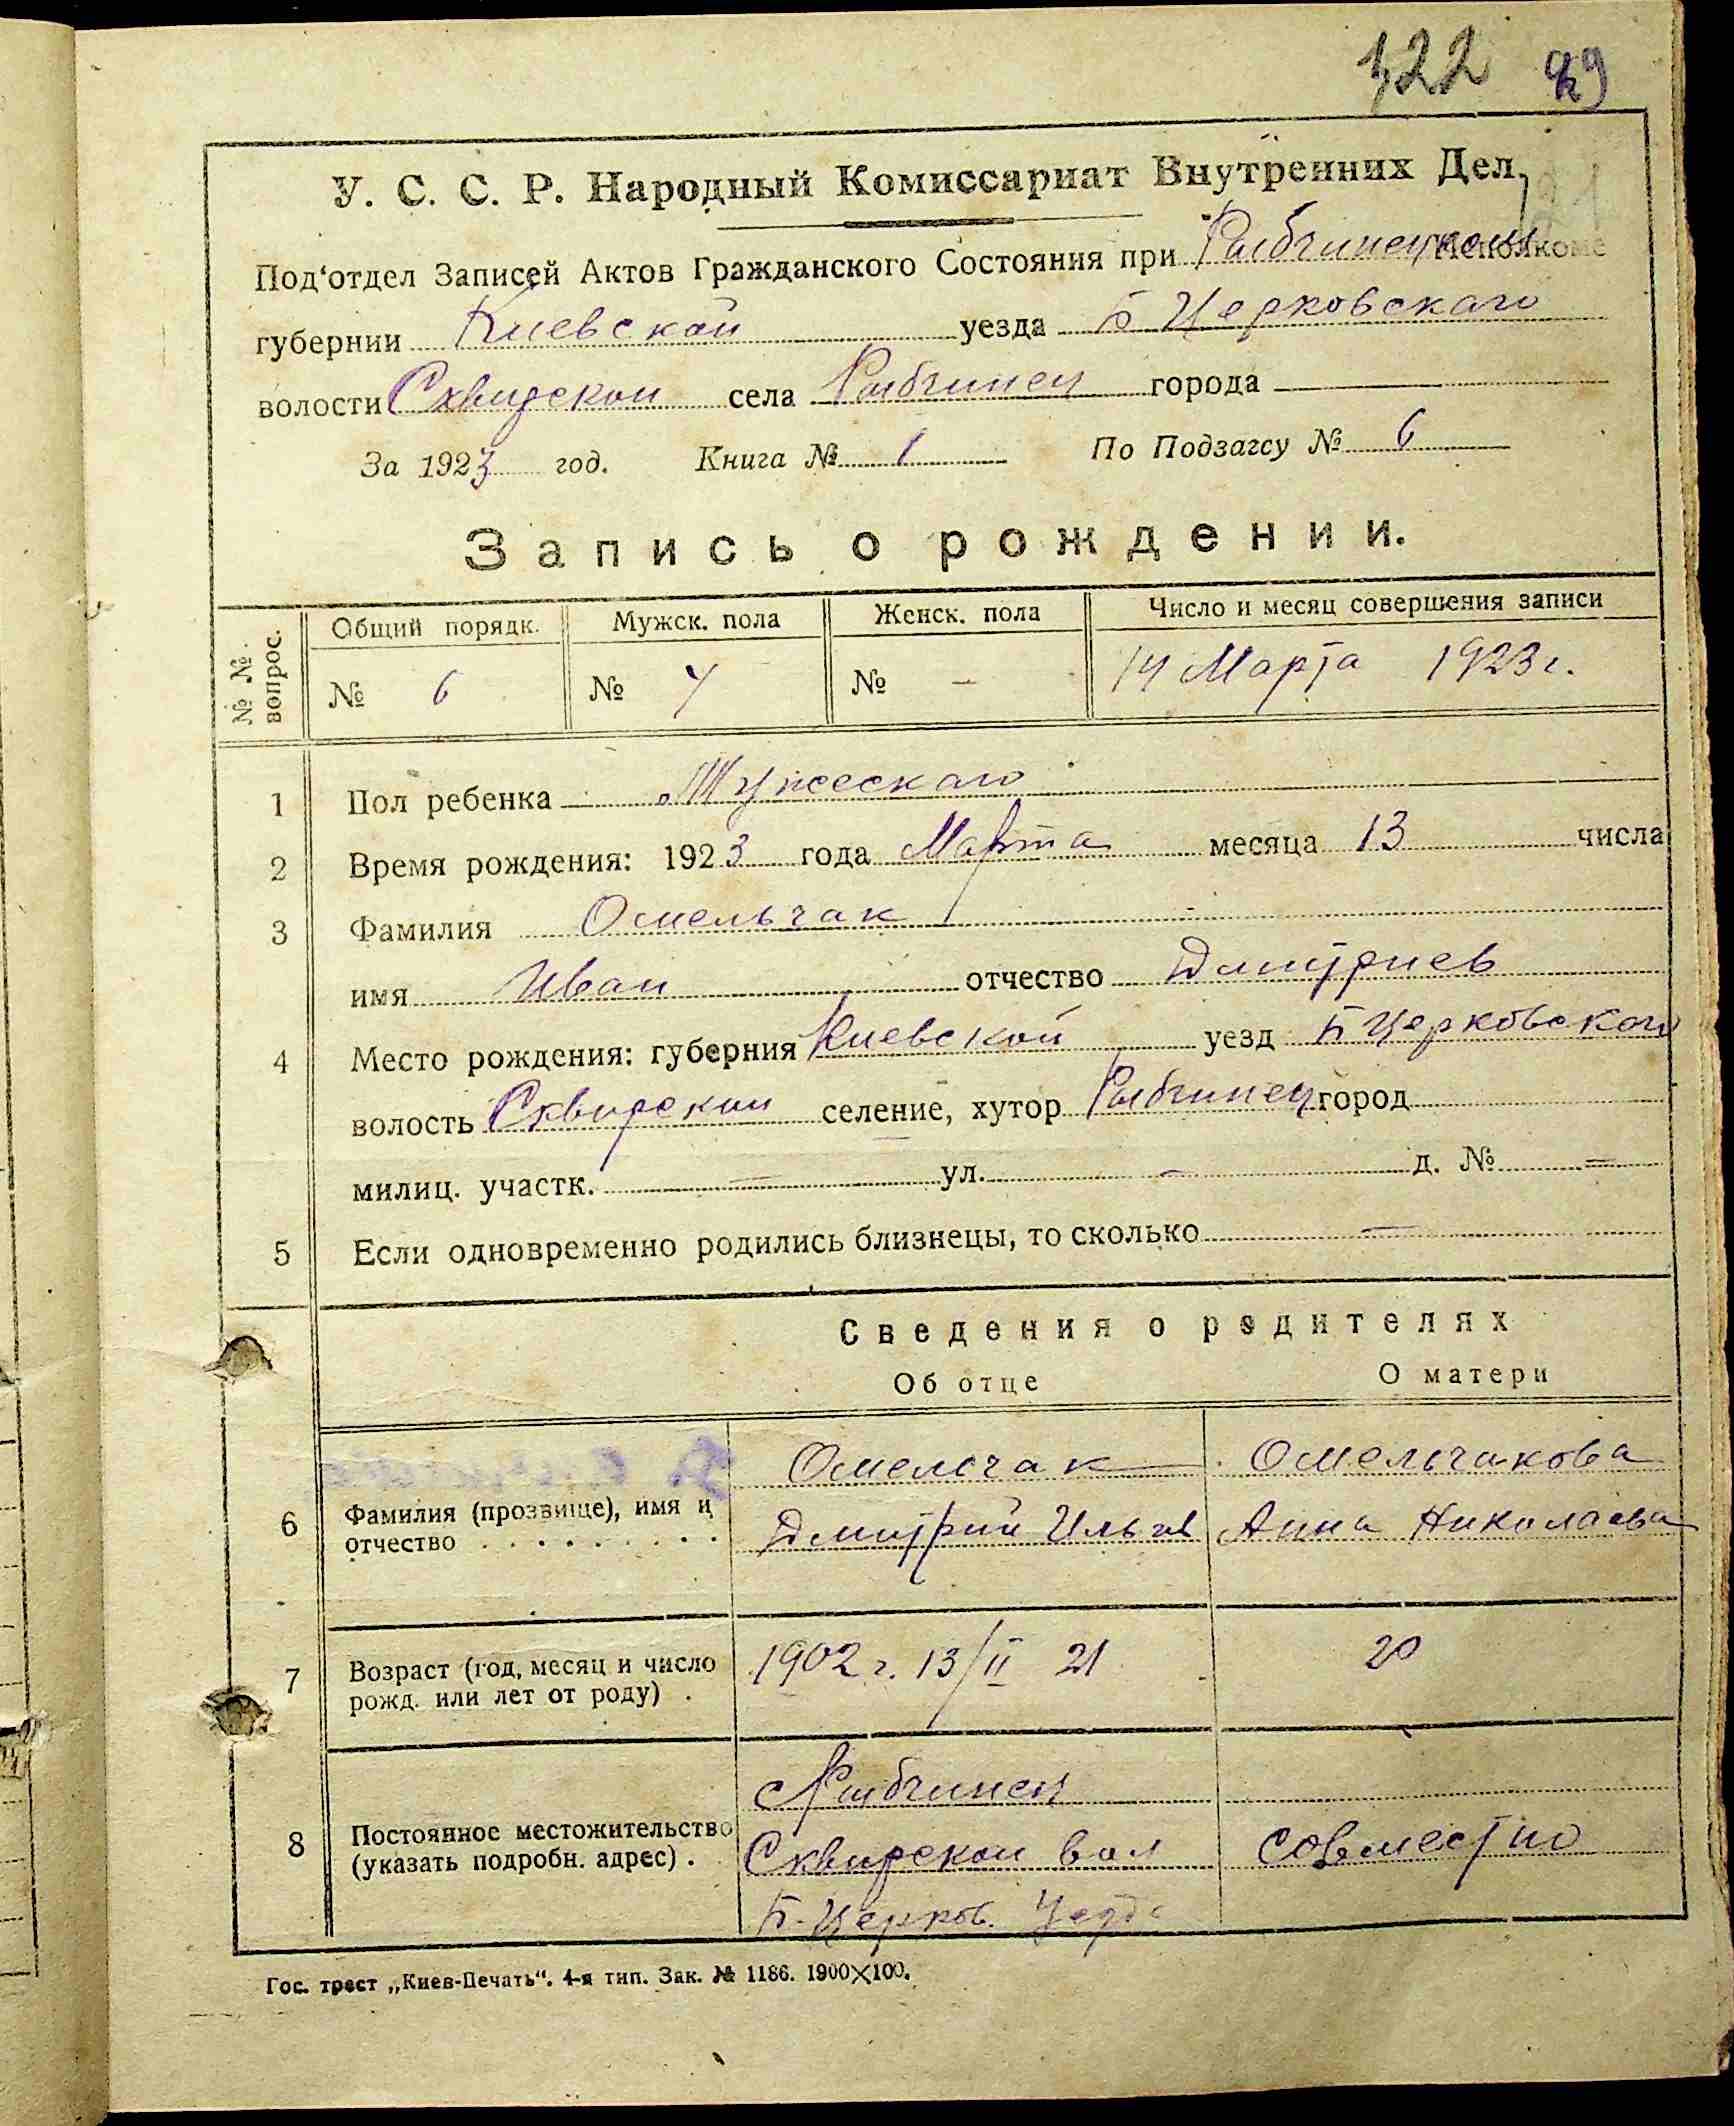 122 89
У. С. С. Р. Народный Комиссариат Внутренних Дел,
Под‘отдел Записей Актов Гражданского Состояния при Рыбчинецком Исполкоме
губернии Киевской уезда Б Церковскаго
волости Сквирской села Рыбчинец города —
За 1923 год. Книга № 1 По Подзагсу № 6
Запись о рождении.
№ № вопрос. Общий порядк. Мужск. пола Женск. пола Число и месяц совершения записи
№ 6 № 4 № – 14 Марта 1923 г.
1 Пол ребенка Мужескаго
2 Время рождения: 1923 года Марта месяца 13 числа
3 Фамилия Омельчак
имя Иван отчество Дмитриев
4 Место рождения: губерния Киевской уезд Б Церковскаго
волость Сквирской селение, хутор Рыбчинец город
милиц. участк. — ул. – д. № =
5 Если одновременно родились близнецы, то сколько —
Сведения о родителях
Об отце О матери
Омельчак Омельчакова
6 Фамилия (прозвище), имя и отчество . . . . . . . . . Дмитрий Ильев Анна Николаева
7 Возраст (год, месяц и число рожд. или лет от роду) . 1902 г. 13/II 21 20
с Рыбчинец
8 Постоянное местожительство (указать подробн. адрес) . Сквирской вол совместно
Б-Церков. Уезда
Гос. трест „Киев-Печать“. 4-я тип. Зак. № 1186. 1900×100.